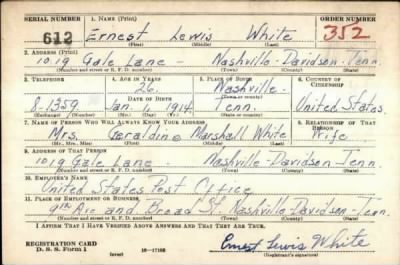 SERIAL NUMBER 1. NAME (Print) ORDER NUMBER
612 Ernest Lewis White 352
(First) (Middle) (Last)
2. ADDRESS (Print)
1019 Gale Lane - Nashville-Davidson-Tenn.
(Number and street or R. F. D. number) (Town) (County) (State)
3. TELEPHONE 4. AGE IN YEARS 5. PLACE OF BIRTH 6. COUNTRY OF CITIZENSHIP
26 Nashville-
DATE OF BIRTH (Town or county)
8-1359 Jan. 1914 Tenn. United States
(Exchange) (Number) (Mo.) (Day) (Yr.) (State or country)
7. NAME OF PERSON WHO WILL ALWAYS KNOW YOUR ADDRESS 8. RELATIONSHIP OF THAT PERSON
Mrs. Geraldine Marshall White Wife
(Mr., Mrs., Miss) (First) (Middle) (Last)
9. ADDRESS OF THAT PERSON
1019 Gale Lane Nashville-Davidson-Tenn.
(Number and street or R. F. D. number) (Town) (County) (State)
10. EMPLOYER'S NAME
United States Post Office
11. PLACE OF EMPLOYMENT OR BUSINESS
9th Ave and Broad St. Nashville-Davidson-Tenn.
(Number and street or R. F. D. number) (Town) (County) (State)
I AFFIRM THAT I HAVE VERIFIED ABOVE ANSWERS AND THAT THEY ARE TRUE.
REGISTRATION CARD
D. S. S. Form 1 (over) Ernest Lewis White
(Registrant's signature)